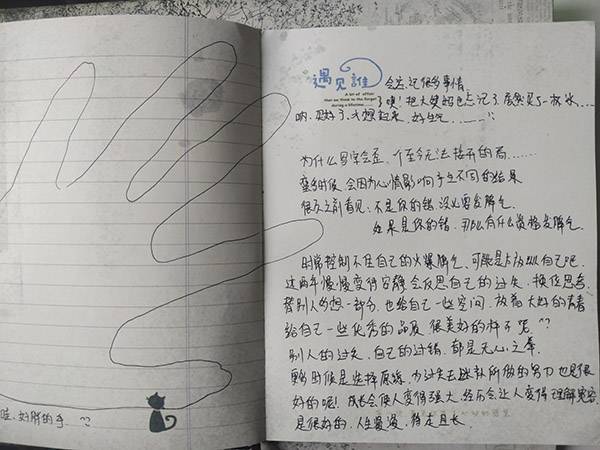 哇，好胖的手。
遇见谁 会忘记很多事情
A lot of other
that we think to the forget
during a lifetime......
噢！把大姨妈也忘记了，居然买了一杯冰......
呐，买好了，才想起来，好生气.........
为什么写字会歪，一个至今无法解开的局......
变多时候，会因为心情影响产生不同的结果
很久之前看见：不是你的错，没必要发脾气，
如果是你的错，那么有什么资格发脾气。
时常控制不住自己的火爆脾气，可能是自己吧，
这两年慢慢变得安静会反思自己的过失，换位思考，
替别人多想一部分，也给自己一些空间，放着大好的青春
给自己一些优秀的品质，很美好的样子呢 ^?
别人的过失，自己的过错，都是无心之举，
更多时候是选择原谅，为过失去弥补所做的努力也是很
好的呢！成长会使人变得强大，经历会让人变得理解宽容
是很好的，人生漫漫，待走且长